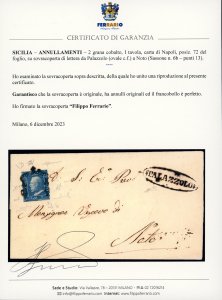 FERRARIO
CERTIFICATO DI GARANZIA
SICILIA – ANNULLAMENTI – 2 grana cobalto, I tavola, carta di Napoli, posiz. 72 del
foglio, su sovracoperta di lettera da Palazzolo (ovale c.f.) a Noto (Sassone n. 6b – punti 13).
Ho esaminato la sovracoperta sopra descritta, della quale ho unito una riproduzione al presente
certificato.
Garantisco che la sovracoperta è originale, ha annulli originali ed il francobollo è perfetto.
Ho firmato la sovracoperta "Filippo Ferrario".
Milano, 6 dicembre 2023
PALAZZOLO
Noto
Sede e Studio:
Internet www.filippoferrario.com